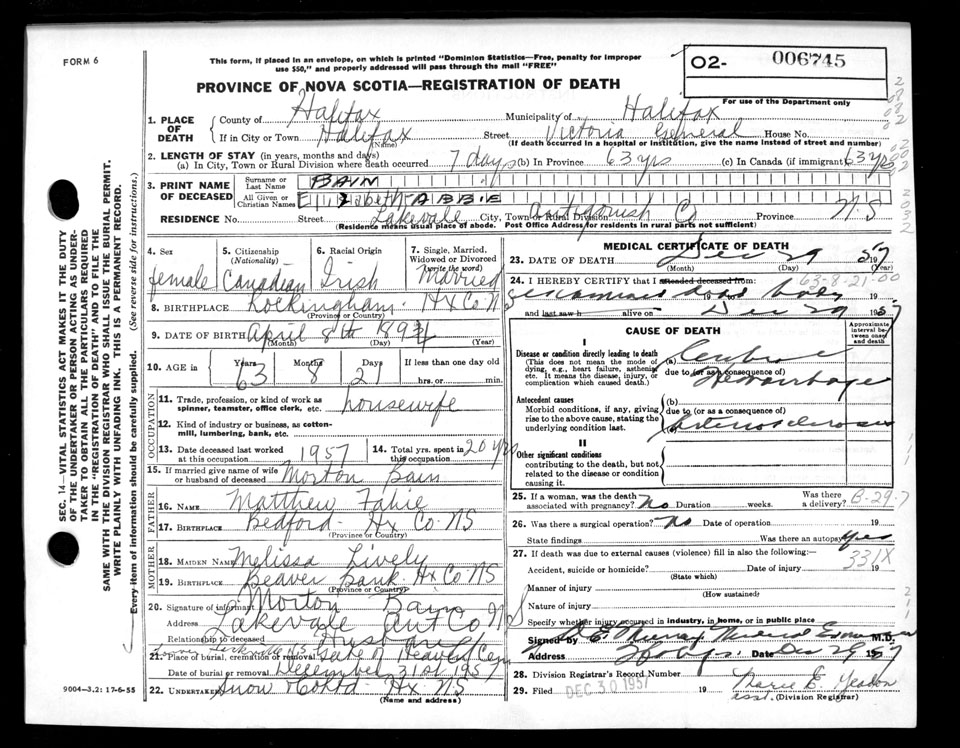 FORM 6
This form, if placed in an envelope, on which is printed "Dominion Statistics—Free, penalty for improper
use $50," and properly addressed will pass through the mail "FREE"
O2- 006745
PROVINCE OF NOVA SCOTIA—REGISTRATION OF DEATH
For use of the Department only
1. PLACE OF DEATH
County of Halifax Municipality of Halifax
If in City or Town Halifax Street Victoria General House No.
(Name) (If death occurred in a hospital or institution, give the name instead of street and number)
2. LENGTH OF STAY (in years, months and days)
(a) In City, Town or Rural Division where death occurred 7 days (b) In Province 63 yrs (c) In Canada (if immigrant) 63 yrs
3. PRINT NAME OF DECEASED
Surname or Last Name BAIN
All Given or Christian Names Elizabeth ABBIE
RESIDENCE No. Street Lakevale City, Town or Rural Division Antigonish Co Province N.S
(Residence means usual place of abode. Post Office Address for residents in rural parts not sufficient)
4. Sex female
5. Citizenship (Nationality) Canadian
6. Racial Origin Irish
7. Single, Married, Widowed or Divorced (write the word) Married
8. BIRTHPLACE Rockingham Hx Co NS
(Province or Country)
9. DATE OF BIRTH April 8th 1894
(Month) (Day) (Year)
10. AGE in Years 63 Months 8 Days 21 If less than one day old hrs. or min.
OCCUPATION
11. Trade, profession, or kind of work as spinner, teamster, office clerk, etc. housewife
12. Kind of industry or business, as cotton-mill, lumbering, bank, etc.
13. Date deceased last worked at this occupation 1957 14. Total yrs. spent in this occupation 20 yrs
15. If married give name of wife or husband of deceased Morton Bain
FATHER
16. NAME Matthew Fahie
17. BIRTHPLACE Bedford Hx Co. NS
(Province or Country)
MOTHER
18. MAIDEN NAME Melissa Lively
19. BIRTHPLACE Beaver Bank Hx Co NS
(Province or Country)
20. Signature of informant Morton Bain
Address Lakevale Ant Co NS
Relationship to deceased Husband
21. Place of burial, cremation or removal Gate of Heaven Cem
Date of burial or removal December 31st 1957
22. UNDERTAKER Snow Hx NS
(Name and address)
MEDICAL CERTIFICATE OF DEATH
23. DATE OF DEATH Dec 29 1957
(Month) (Day) (Year)
63-8-21-00
24. I HEREBY CERTIFY that I attended deceased from: examined dead body
19 to 19
and last saw h alive on Dec 29 1957
CAUSE OF DEATH
Approximate interval between onset and death
I
Disease or condition directly leading to death
(This does not mean the mode of dying, e.g., heart failure, asthenia, etc. It means the disease, injury, or complication which caused death.)
(a) Cerebral
due to (or as a consequence of) Hemorrhage
Antecedent causes
Morbid conditions, if any, giving rise to the above cause, stating the underlying condition last.
(b)
due to (or as a consequence of)
Arteriosclerosis
II
Other significant conditions
contributing to the death, but not related to the disease or condition causing it.
25. If a woman, was the death associated with pregnancy? No Duration weeks. Was there a delivery?
B-29-7
26. Was there a surgical operation? No Date of operation 19
State findings Was there an autopsy? Yes
27. If death was due to external causes (violence) fill in also the following:—
331X
Accident, suicide or homicide? Date of injury 19
(State which)
Manner of injury
(How sustained)
Nature of injury
Specify whether injury occurred in industry, in home, or in public place
Signed by E. Murray Medical Examiner M.D.
Address Date Dec 29 1957
28. Division Registrar's Record Number
29. Filed DEC 30 1957 19 Marie E. Yeadon
asst. (Division Registrar)
SEC. 14—VITAL STATISTICS ACT MAKES IT THE DUTY
OF THE UNDERTAKER OR PERSON ACTING AS UNDER-
TAKER TO OBTAIN ALL THE PARTICULARS REQUIRED
IN THE "REGISTRATION OF DEATH" AND TO FILE THE
SAME WITH THE DIVISION REGISTRAR WHO SHALL ISSUE THE BURIAL PERMIT.
WRITE PLAINLY WITH UNFADING INK. THIS IS A PERMANENT RECORD.
Every item of information should be carefully supplied. (See reverse side for instructions.)
9004—3.2: 17-6-55